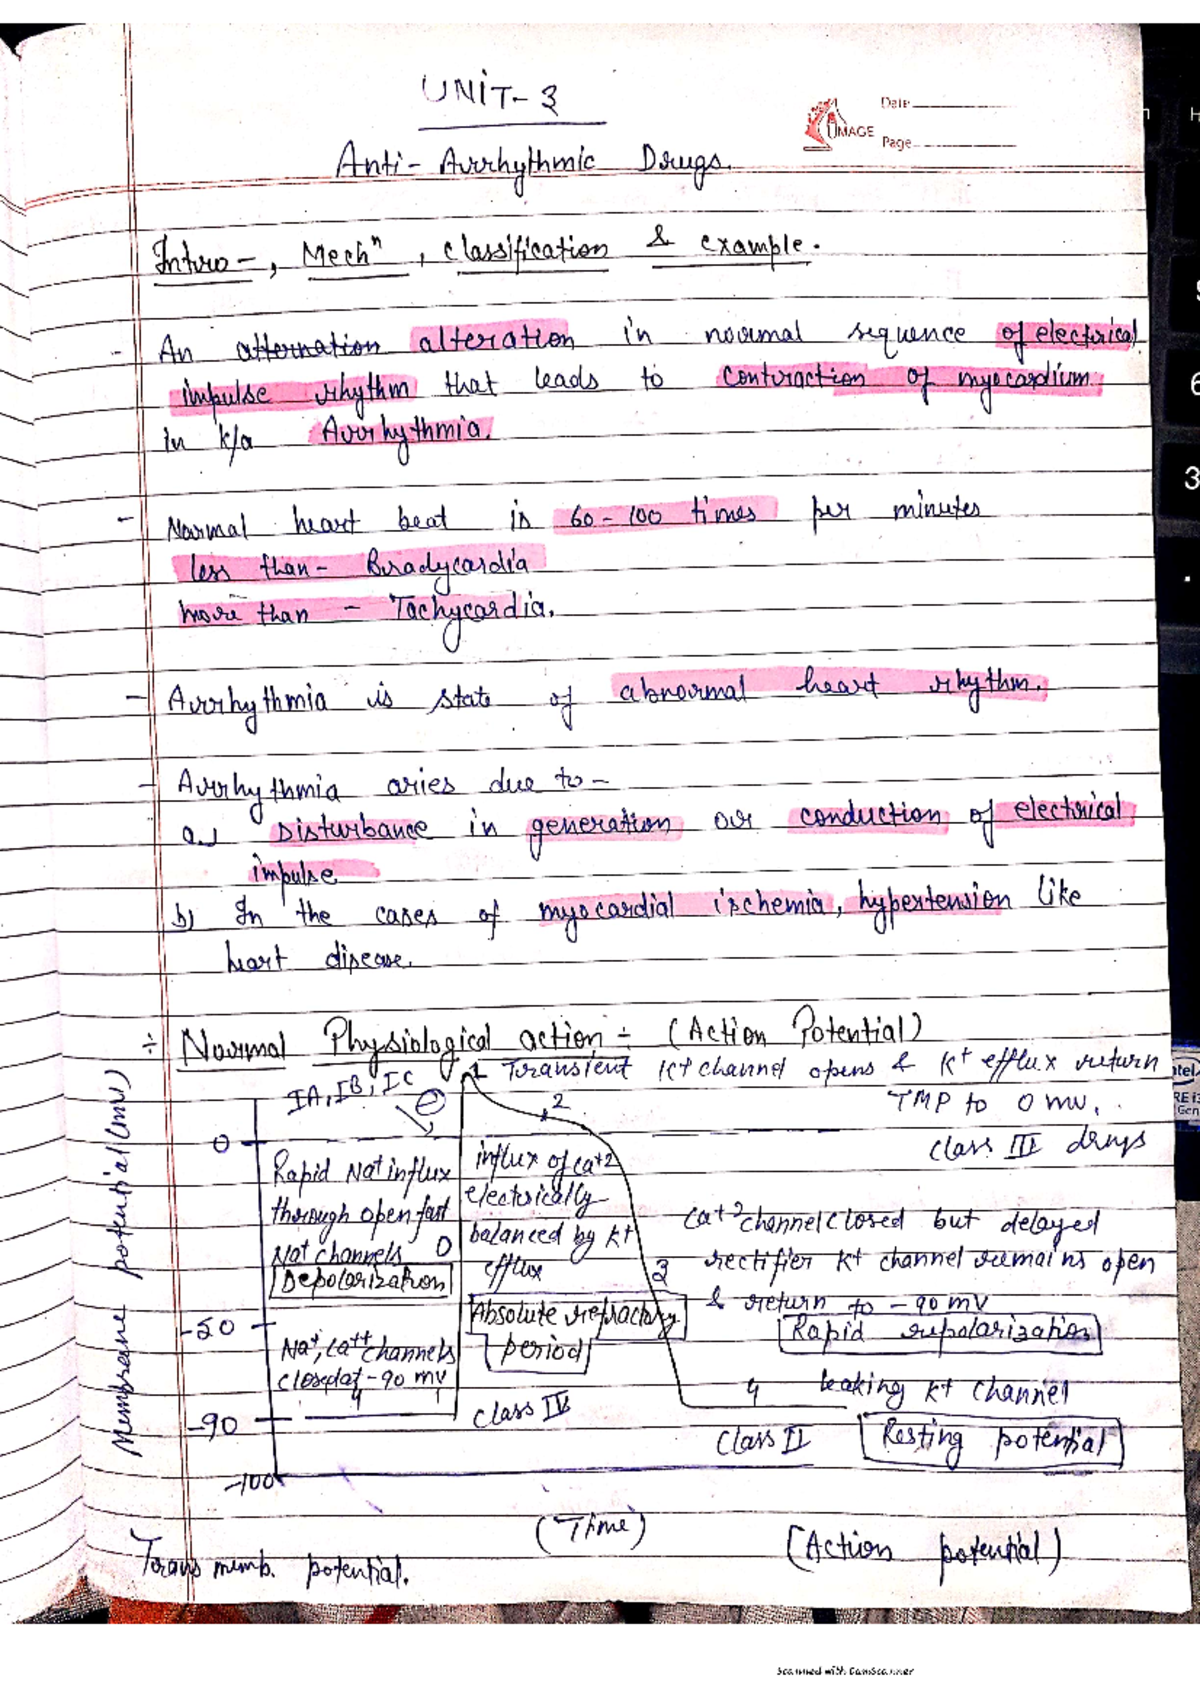 UNIT-3
IMAGE
Date
Page
Anti-Arrhythmic Drugs.
Intro-, Mechⁿ, classification & example.
- An alternation alteration in normal sequence of electrical
impulse rhythm that leads to contraction of myocardium
is k/a Arrhythmia.
- Normal heart beat is 60-100 times per minutes
less than - Bradycardia
more than - Tachycardia.
- Arrhythmia is state of abnormal heart rhythm.
- Arrhythmia aries due to -
a.) Disturbance in generation or conduction of electrical
impulse
b) In the cases of myocardial ischemia, hypertension like
heart disease.
÷ Normal Physiological action ÷ (Action Potential)
1 Transient K+ channel opens & K+ efflux return
TMP to 0 mv.
Class III drugs
IA, IB, IC
2
Membrane potential (mv)
0
-50
-90
-100
Rapid Na+ influx
through open fast
Na+ channels 0
Depolarization
Na+, Ca++ channels
closed at -90 mV
4
influx of Ca+2
electrically
balanced by K+
efflux
Absolute refractory
period
Class IV
3
Ca+2 channel closed but delayed
rectifier K+ channel remains open
& return to -90 mV
Rapid repolarization
4 leaking K+ channel
Class II
Resting potential
(Time)
(Action potential)
Trans memb. potential.
Scanned with CamScanner